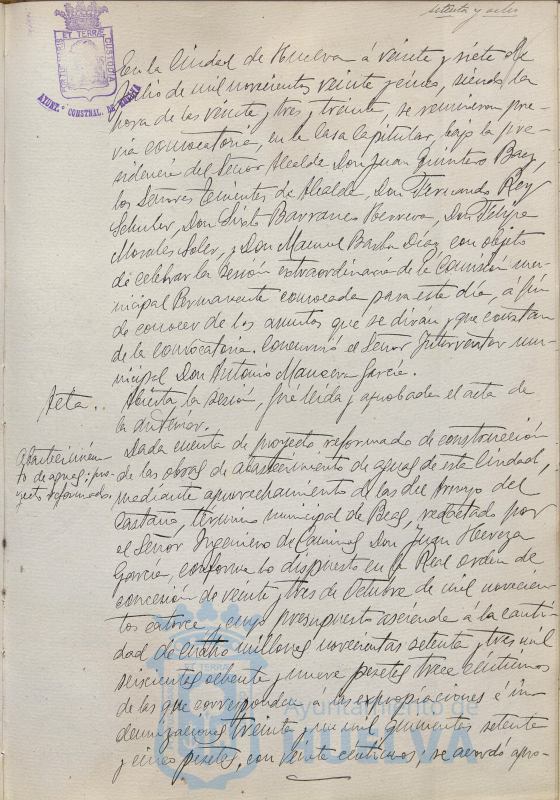 setenta y ocho
PORTUS MARIS ET TERRAE CUSTODIA
AYUNT.º CONSTNAL. DE HUELVA
En la Ciudad de Huelva á veinte y siete de
Julio de mil novecientos veinte y cinco, siendo la
hora de las veinte y tres y treinta, se reunieron pre-
via convocatoria, en la Casa Capitular, bajo la pre-
sidencia del Señor Alcalde Don Juan Quintero Baez,
los Señores Tenientes de Alcalde, Don Fernando Rey
Schuler, Don Sixto Barranco Herrera, Don Felipe
Morales Soler, y Don Manuel Barba Díaz con objeto
de celebrar la sesión extraordinaria de la Comisión mu-
nicipal Permanente convocada para este día, a fin
de conocer de los asuntos que se dirán y que constan
de la convocatoria. Concurrió el Señor Interventor mu-
nicipal Don Antonio Manseva García.
Acta..
Abierta la sesión, fué leída y aprobada el acta de
la anterior.
Abastecimien-
to de aguas; pro-
yecto reformado.
Dada cuenta de proyecto reformado de construcción
de las obras de abastecimiento de aguas de esta Ciudad,
mediante aprovechamiento de las del Arroyo del
Castaño, término municipal de Beas, redactado por
el Señor Ingeniero de Caminos Don Juan Herrera
García, conforme lo dispuesto en la Real orden de
concesión de veinte y tres de Octubre de mil novecien-
tos catorce, cuyo presupuesto asciende á la canti-
dad de cuatro millones novecientas setenta y tres mil
seiscientas ochenta y nueve pesetas trece céntimos
de las que corresponden á las expropiaciones é in-
demnizaciones treinta y un mil quinientas setenta
y cinco pesetas, con veinte céntimos; se acordó apro-
Ayuntamiento de
HUELVA